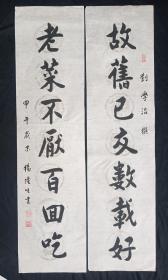 故舊已交數載好
劉學治 撰
老菜不厭百回吃
甲午歲末